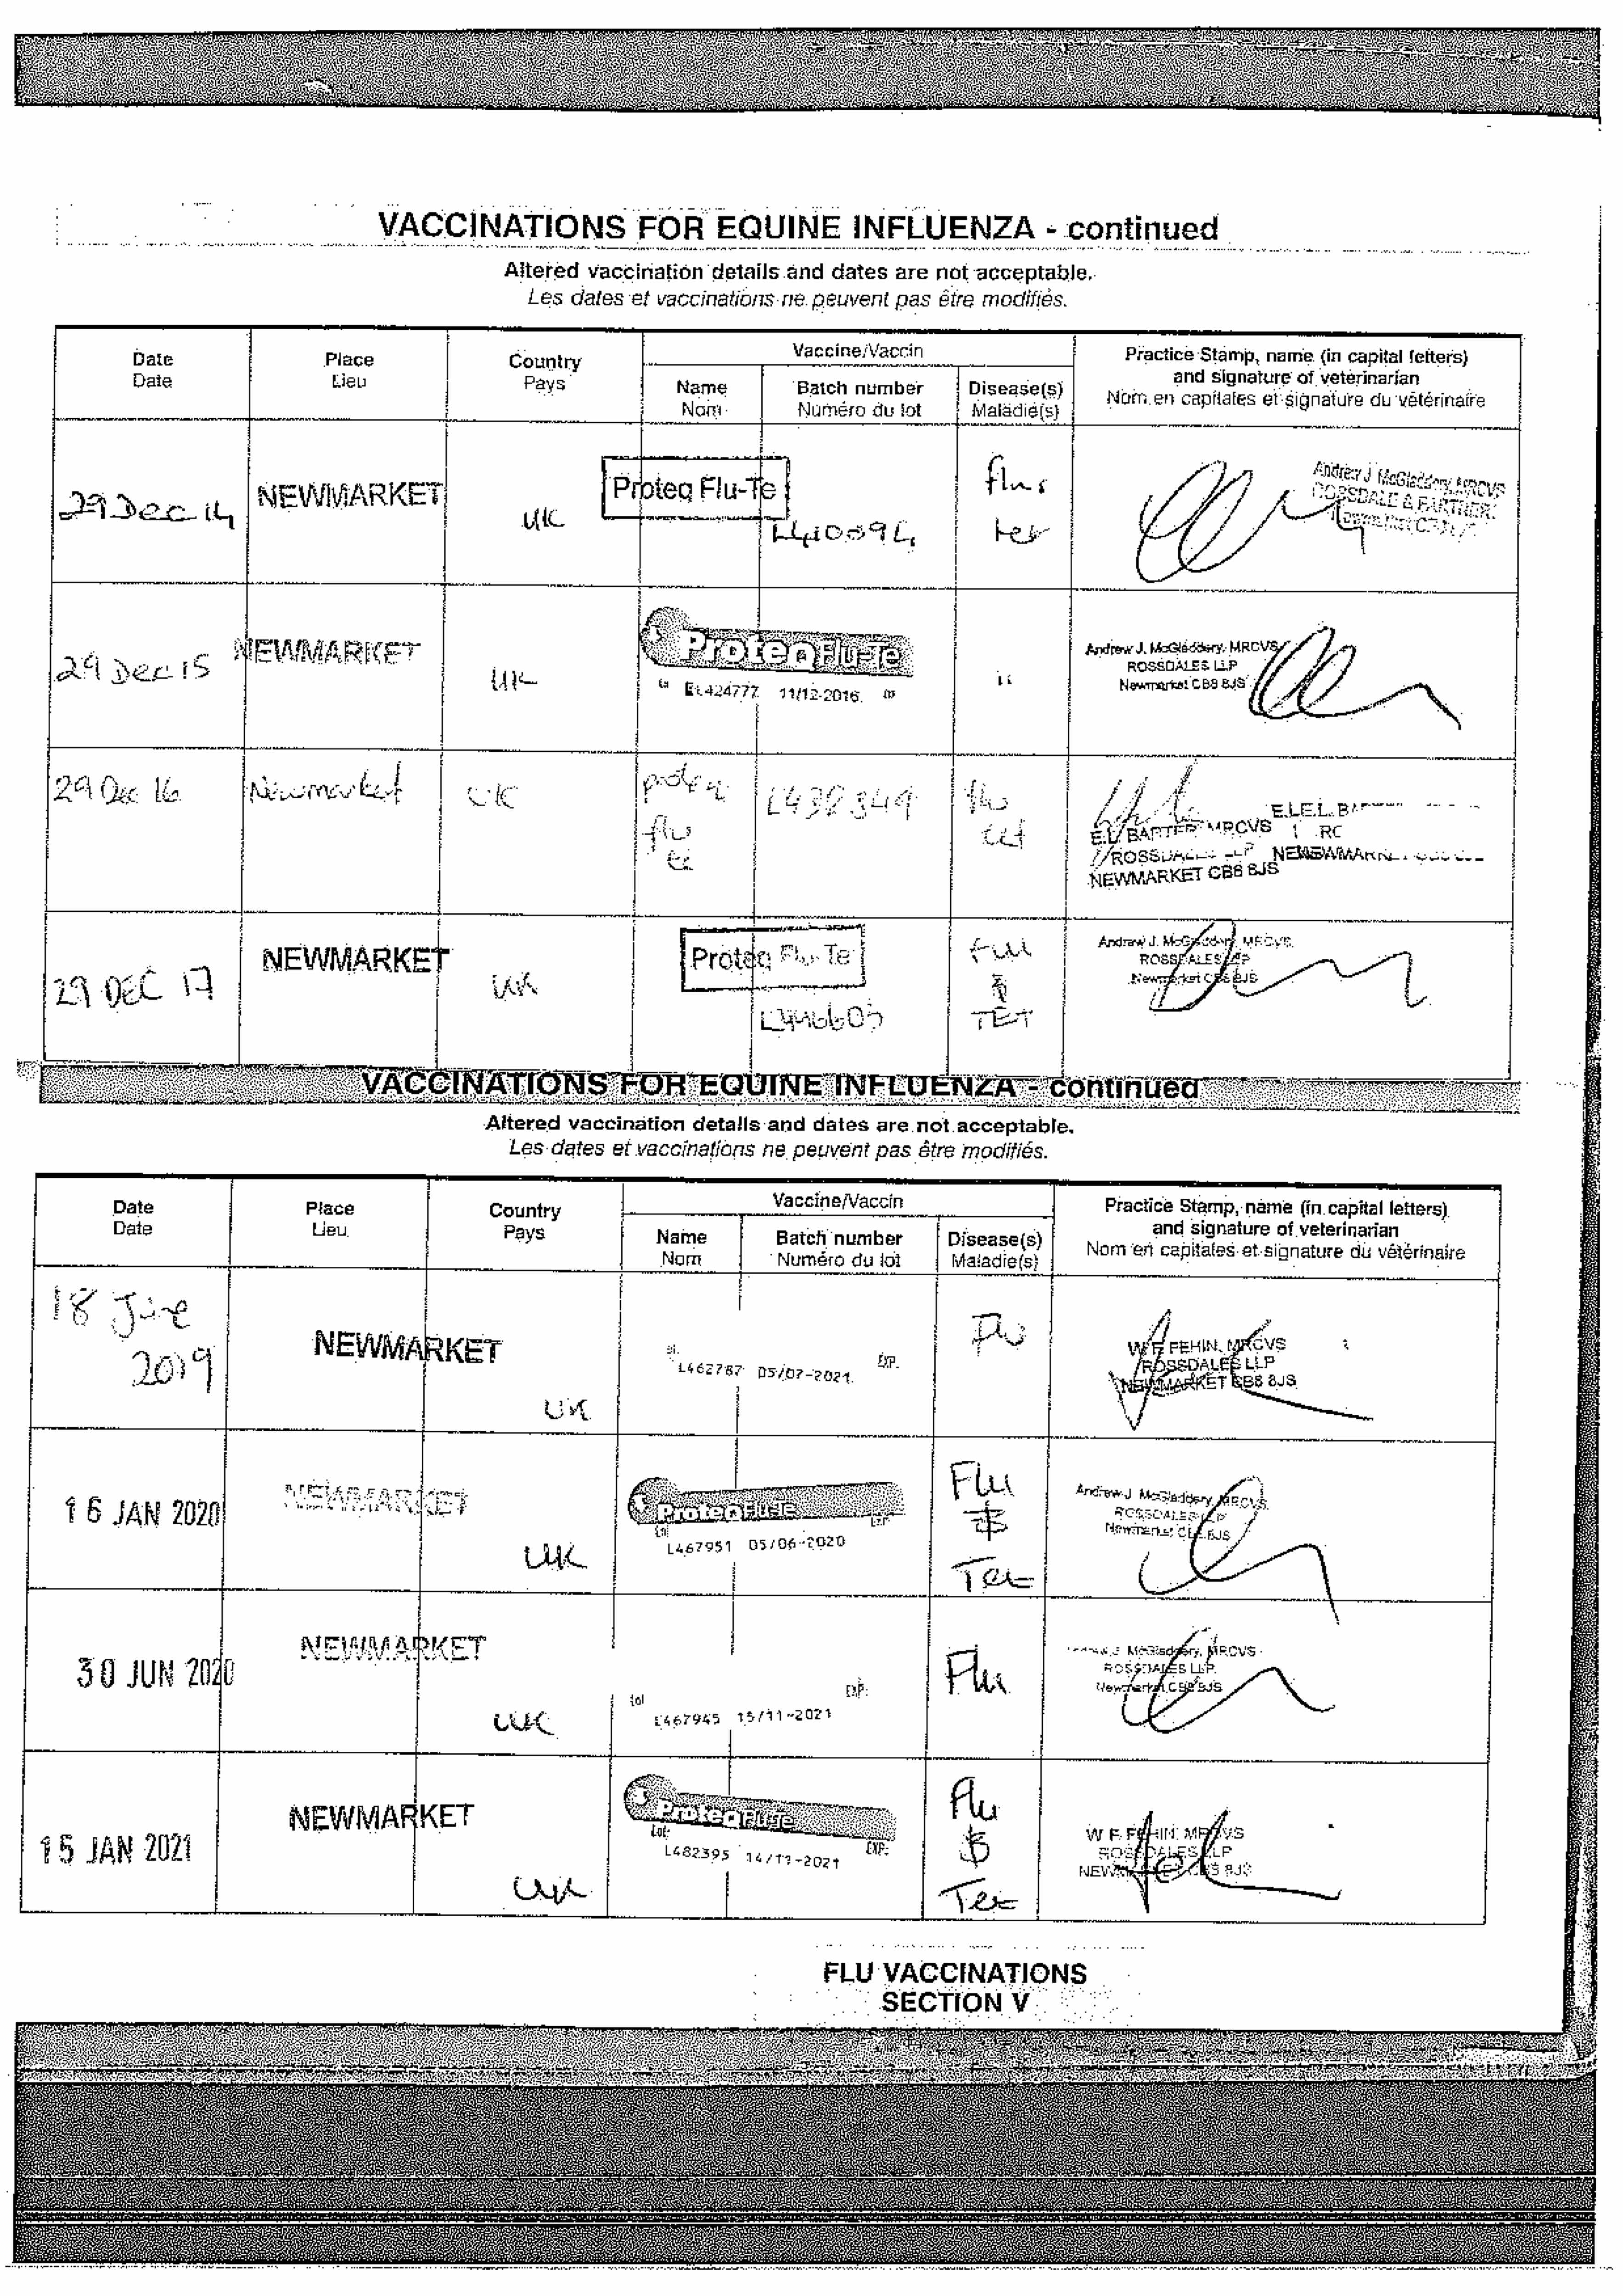 VACCINATIONS FOR EQUINE INFLUENZA - continued
Altered vaccination details and dates are not acceptable.
Les dates et vaccinations ne peuvent pas être modifiés.
Date Place Country Vaccine/Vaccin Practice Stamp, name (in capital letters)
Date Lieu Pays Name Batch number Disease(s) and signature of veterinarian
Nom Numéro du lot Maladie(s) Nom en capitales et signature du vétérinaire
29 Dec 14 NEWMARKET UK Proteq Flu-Te flu tet Andrew J McGladdery, MRCVS
ROSSDALE & PARTNERS
29 Dec 15 NEWMARKET UK ProteqFlu-Te " Andrew J. McGladdery, MRCVS
EL424777 11/12-2016 ROSSDALES LLP
Newmarket CB8 8JS
29 Dec 16 Newmarket UK proteq L438349 flu
flu tet
te
E.L. BARTER MRCVS
ROSSDALES LLP
NEWMARKET CB8 8JS
29 DEC 17 NEWMARKET UK Proteq Flu-Te Flu Andrew J. McGladdery, MRCVS
L446605 & ROSSDALES LLP
TET Newmarket CB8 8JS
VACCINATIONS FOR EQUINE INFLUENZA - continued
Altered vaccination details and dates are not acceptable.
Les dates et vaccinations ne peuvent pas être modifiés.
Date Place Country Vaccine/Vaccin Practice Stamp, name (in capital letters)
Date Lieu Pays Name Batch number Disease(s) and signature of veterinarian
Nom Numéro du lot Maladie(s) Nom en capitales et signature du vétérinaire
18 June
2019 NEWMARKET UK L462787 05/07-2021 EXP. Flu W F FEHIN, MRCVS
ROSSDALES LLP
NEWMARKET CB8 8JS
16 JAN 2020 NEWMARKET UK ProteqFlu-Te Flu Andrew J. McGladdery, MRCVS
Lot EXP & ROSSDALES LLP
L467951 05/06-2020 Tet Newmarket CB8 8JS
30 JUN 2020 NEWMARKET UK Lot EXP: Flu McGladdery, MRCVS
L467945 15/11-2021 ROSSDALES LLP
Newmarket CB8 8JS
15 JAN 2021 NEWMARKET UK ProteqFlu-Te Flu W F FEHIN, MRCVS
Lot: EXP: & ROSSDALES LLP
L482395 14/11-2021 Tet NEWMARKET CB8 8JS
FLU VACCINATIONS
SECTION V